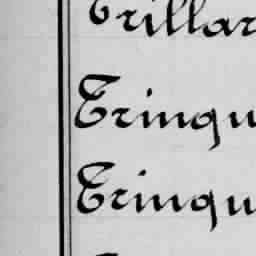 Trillar
Trinqu
Trinqu